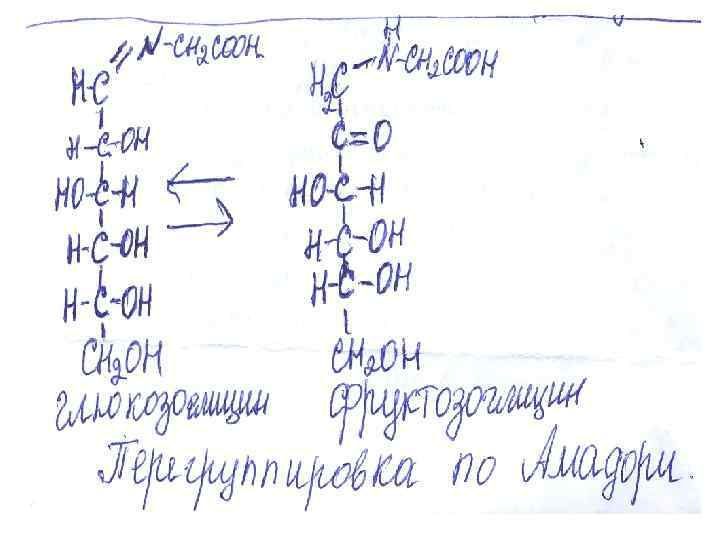 H-C=N-CH2COOH
H-C-OH
HO-C-H
H-C-OH
H-C-OH
CH2OH
глюкозоглицин
H
H2C-N-CH2COOH
C=O
HO-C-H
H-C-OH
H-C-OH
CH2OH
фруктозоглицин
Перегруппировка по Амадори.